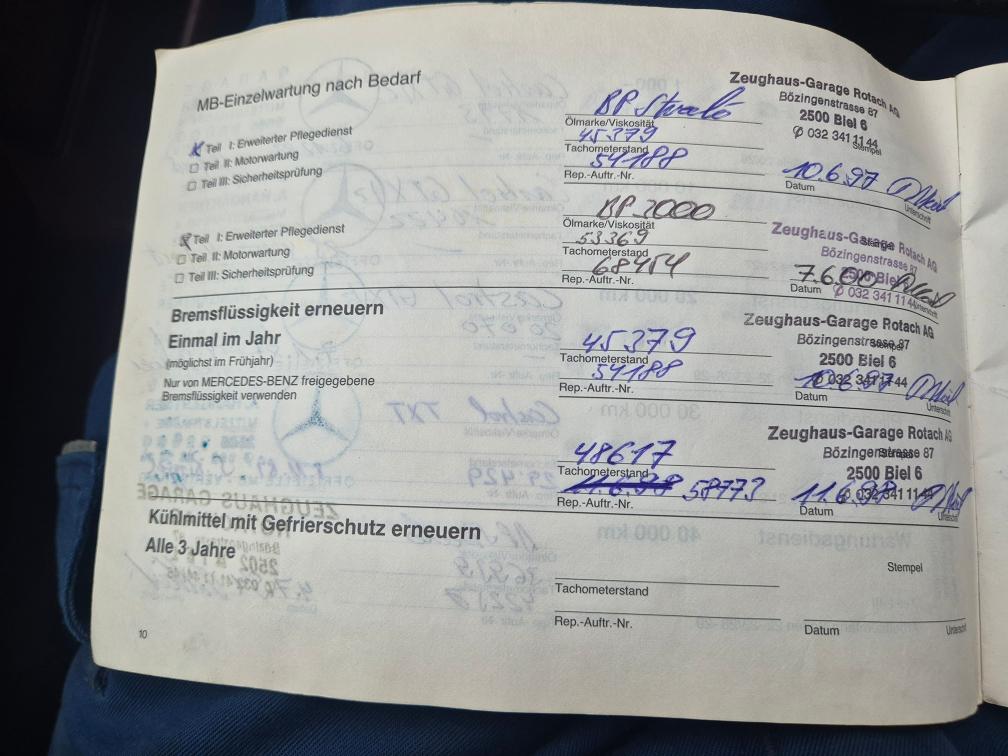 MB-Einzelwartung nach Bedarf
Zeughaus-Garage Rotach AG
Bözingenstrasse 87
2500 Biel 6
✆ 032 341 11 44
Stempel
Teil I: Erweiterter Pflegedienst
Teil II: Motorwartung
Teil III: Sicherheitsprüfung
BP
Ölmarke/Viskosität
45379
Tachometerstand
54188
Rep.-Auftr.-Nr.
10.6.97
Datum
Unterschrift
Teil I: Erweiterter Pflegedienst
Teil II: Motorwartung
Teil III: Sicherheitsprüfung
BP 2000
Ölmarke/Viskosität
53369
Tachometerstand
68454
Rep.-Auftr.-Nr.
Zeughaus-Garage Rotach AG
Stempel
Bözingenstrasse 87
2500 Biel 6
✆ 032 341 11 44
7.6.00
Datum
Unterschrift
Bremsflüssigkeit erneuern
Einmal im Jahr
(möglichst im Frühjahr)
Nur von MERCEDES-BENZ freigegebene
Bremsflüssigkeit verwenden
45379
Tachometerstand
54188
Rep.-Auftr.-Nr.
Zeughaus-Garage Rotach AG
Bözingenstrasse 87
Stempel
2500 Biel 6
✆ 032 341 11 44
10.6.97
Datum
Unterschrift
48617
Tachometerstand
11.6.98 58773
Rep.-Auftr.-Nr.
Zeughaus-Garage Rotach AG
Bözingenstrasse 87
Stempel
2500 Biel 6
✆ 032 341 11 44
11.6.98
Datum
Unterschrift
Kühlmittel mit Gefrierschutz erneuern
Alle 3 Jahre
Stempel
Tachometerstand
Rep.-Auftr.-Nr.
Datum
Unterschrift
10